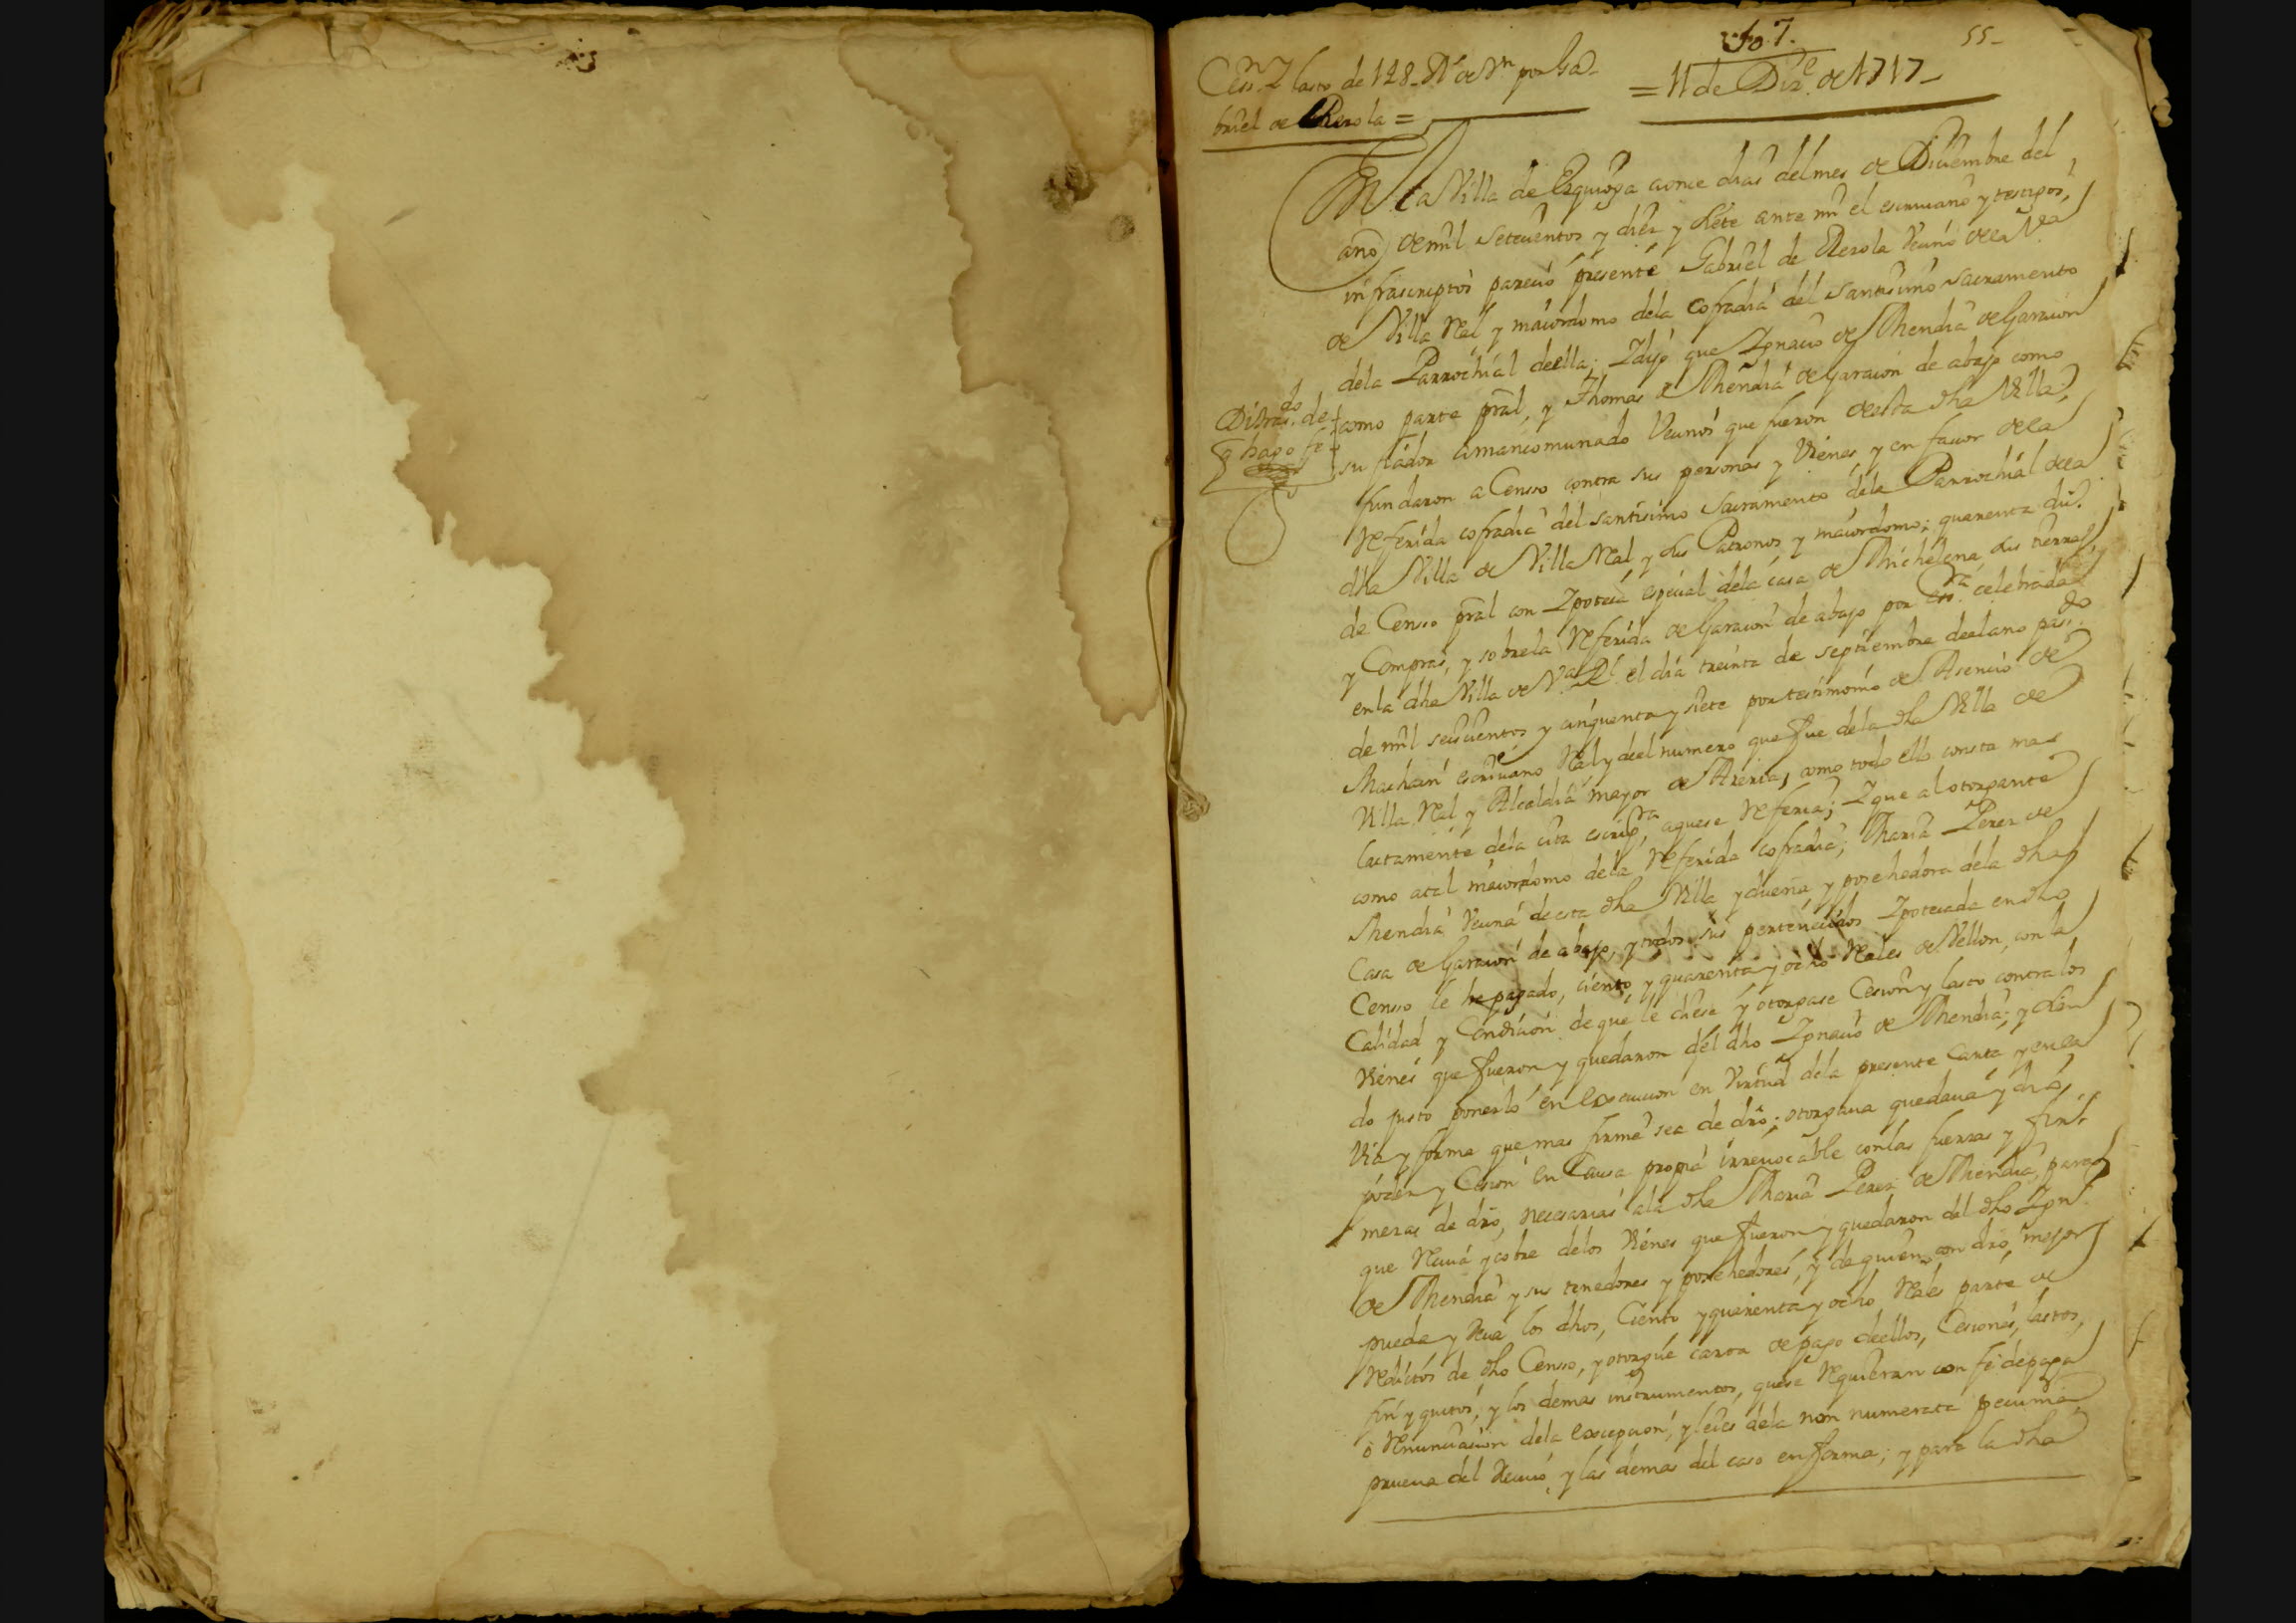 fo. 7.
55-
Cesn. Y lasto de 128. Rs. de Vn por Ga-
briel de Rerola =
= 11 de Dize. de 1717-
En la Villa de Ezquioga a once dias del mes de Diciembre del
año de mil Setecientos y diez y siete ante mi el escriuano y testigos,
infrascriptos pareció presente Gabriel de Rerola Vecino de la Va
de Villa Real y maiordomo dela Cofradia del santisimo sacramento
dela Parrochial deella; Y dijo que Ygnacio de Mendia de Garaicon
como parte pral, y Thomas de Mendia de Garaicon de abajo como
su fiador amancomunado Vecinos que fueron desta dha Villa,
fundaron a Censso contra sus personas y Vienes y en fauor dela
Referida cofradia del santisimo Sacramento dela Parrochial dela
dha Villa de Villa Real y sus Patronos y maiordomo; quarenta dus.
de Censso pral con Ypoteca especial dela casa de Michelena, sus tierras
y Compras, y sobrela Referida de Garaicon de abajo por Essra. celebrada
enla dha Villa de Va. Rl. el dia treinta de septiembre deelano pasdo.
de mil seiscientos y cinquenta y siete por testimonio de Asencio de
Machain escriuano Real y deel numero que fue dela dha Villa de
Villa Real y Alcaldia mayor de Areria, como todo ello consta mas
lactamente dela cita escripra, aquese Refería; Y que al otorgante
como atal maiordomo dela Referida cofradia; Maria Perez de
Mendia Vecina de esta dha Villa y dueña, y posehedora dela dha
Casa de Garaicon de abajo, y todos sus pertenecidos Ypotecada en dho
Censso le ha pagado, ciento y quarenta y ocho Reales de Vellon, con la
Calidad y Condicion de que le diese y otorgase Cesion y lasto contra los
Vienes que fueron y quedaron del dho Ygnacio de Mendia; y sien
do justo ponerlo en execucion en Virtud dela presente Carta y en la
Via y forma que mas firme sea de dro; otorgaua quedaua y dio,
poder y Cesion en Causa propia irreuocable con las fuerzas y fir-
mezas de dro, necesarias ala dha Maria Perez de Mendia, para
que Reciua y cobre delos Vienes que fueron y quedaron del dho Ygno.
de Mendia y sus tenedores y posehedores, y de quien con dro, mejor
pueda y deua los dhos, Ciento y quarenta y ocho Reales parte de
Reditos de dho Censso, y otorgue carta de pago deellos, Cesiones, lastos,
fin y quitos, y los demas instrumentos, quese Requieran con fe depaga
ò Renunciacion dela excepcion, y leies dela non numerata pecunia
prueua del Reciuo, y las demas del caso en forma; y para la dha
Disbrasdo. de
q hago fe